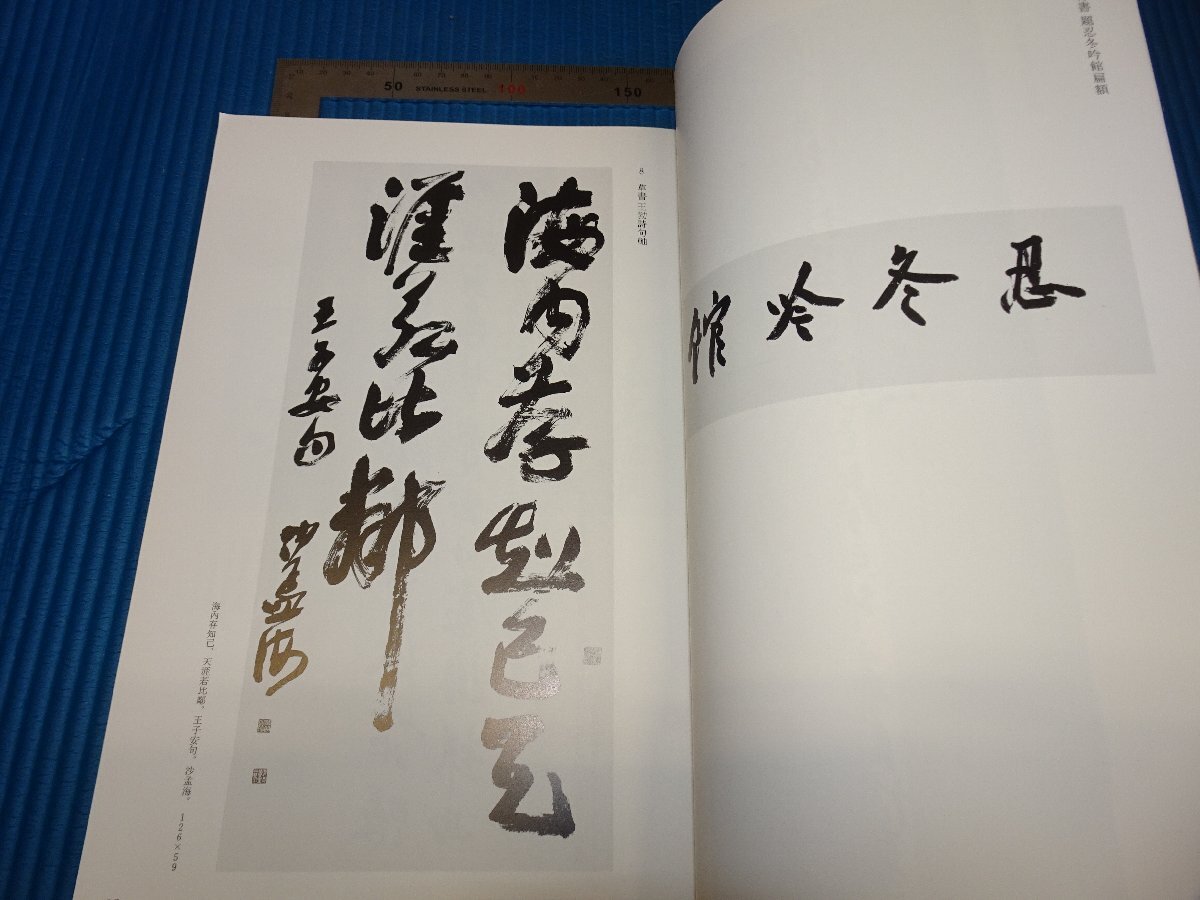 50 STAINLESS STEEL 100 150
書 題忍冬吟館扁額
忍冬吟館
8 草書王勃詩句軸
海内存知己天
涯若比鄰
王子安句
沙孟海
海內存知己，天涯若比鄰。王子安句。沙孟海。 126×59